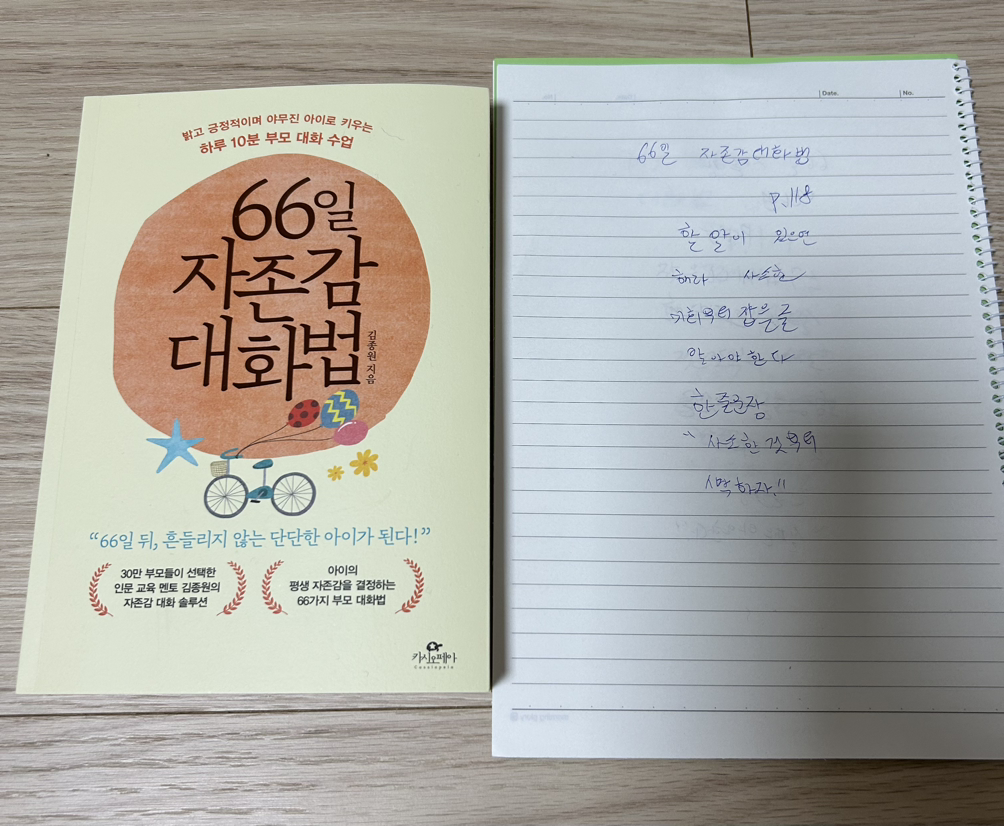 밝고 긍정적이며 야무진 아이로 키우는
하루 10분 부모 대화 수업
66일
자존감
대화법
김종원 지음
“66일 뒤, 흔들리지 않는 단단한 아이가 된다!”
30만 부모들이 선택한
인문 교육 멘토 김종원의
자존감 대화 솔루션
아이의
평생 자존감을 결정하는
66가지 부모 대화법
카시오페아
Cassiopeia
Date.
No.
66일 자존감대화법
P.118
할 말이 있으면
해라 사소한
기회부터 잡은 줄
알아야 한다
한줄문장
" 사소한 것부터
시작하자."